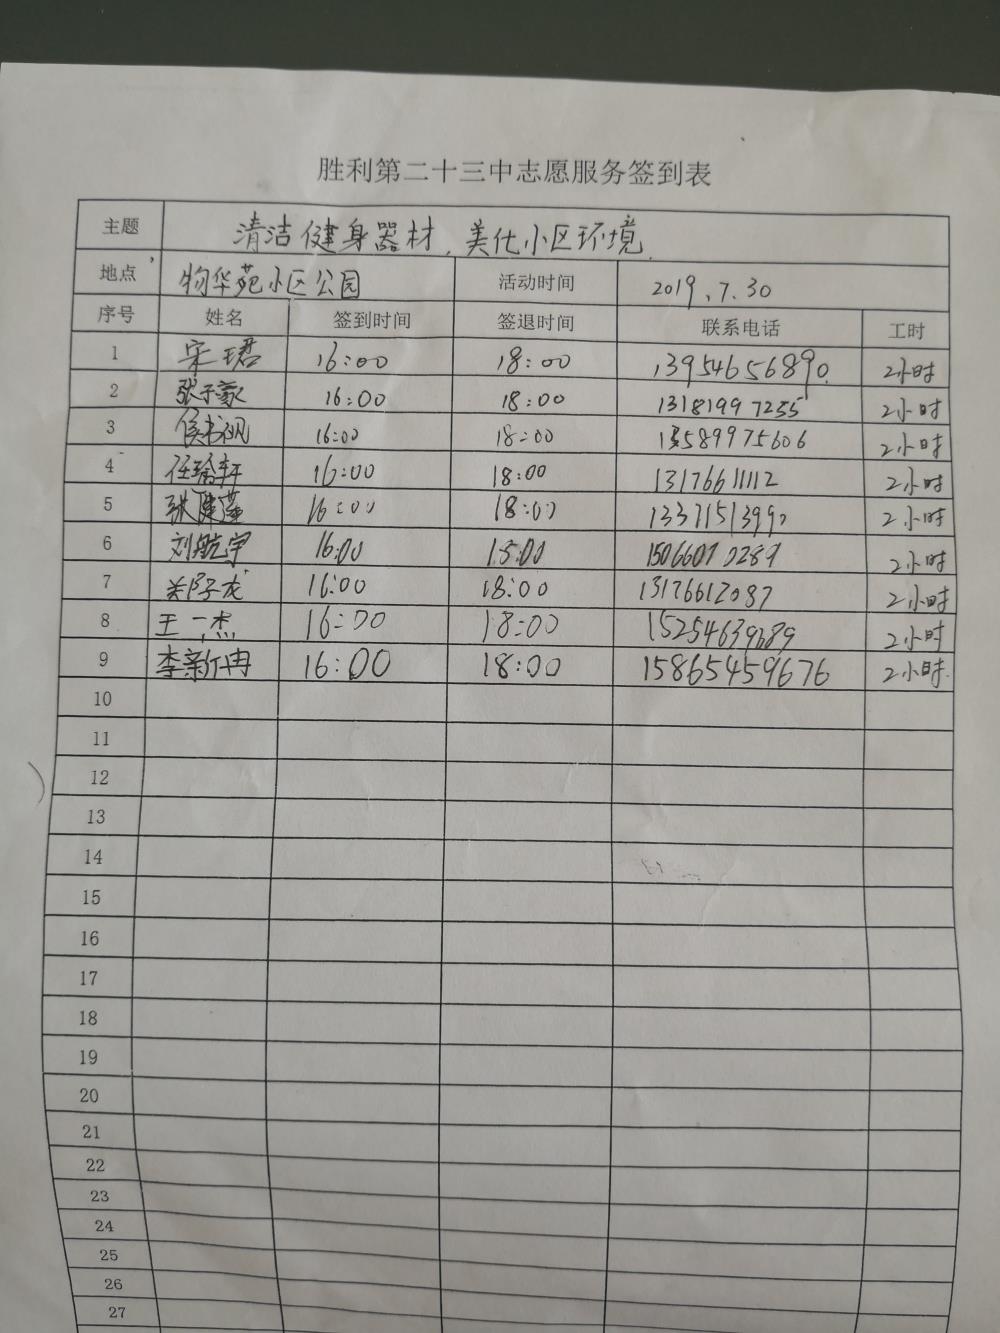 胜利第二十三中志愿服务签到表
主题 清洁健身器材,美化小区环境.
地点 物华苑小区公园 活动时间 2019.7.30
序号 姓名 签到时间 签退时间 联系电话 工时
1 宋珺 16:00 18:00 13954656890 2小时
2 张子豪 16:00 18:00 13181997255 2小时
3 侯书帆 16:00 18:00 13589975606 2小时
4 任瑜轩 16:00 18:00 13176611112 2小时
5 张 16:00 18:00 13371513990 2小时
6 刘航宇 16:00 18:00 15066070289 2小时
7 关 子龙 16:00 18:00 13176612087 2小时
8 王一杰 16:00 18:00 15254639689 2小时
9 李新冉 16:00 18:00 15865459676 2小时.
10
11
12
13
14
15
16
17
18
19
20
21
22
23
24
25
26
27